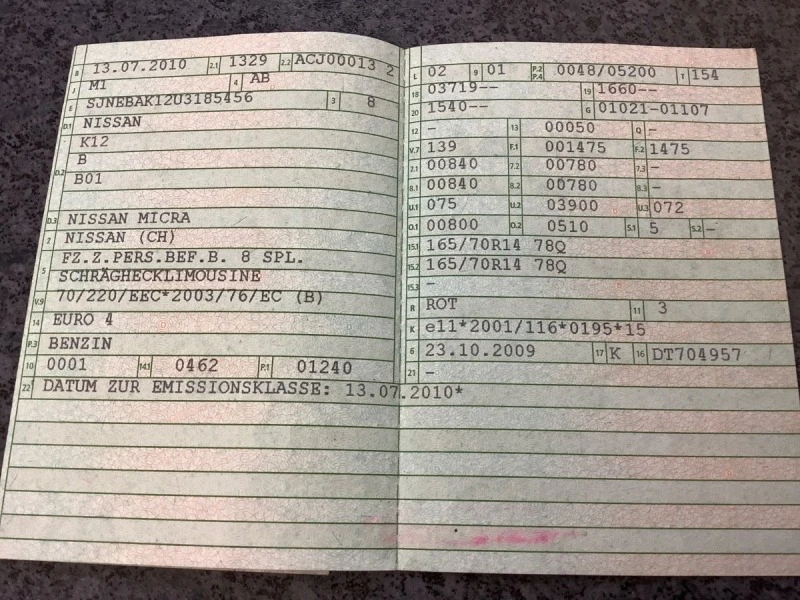 B 13.07.2010 2.1 1329 2.2 ACJ00013 2
J M1 4 AB
E SJNEBAK12U3185456 3 8
D.1 NISSAN
D.2 K12
B
B01
D.3 NISSAN MICRA
2 NISSAN (CH)
5 FZ.Z.PERS.BEF.B. 8 SPL.
SCHRÄGHECKLIMOUSINE
V.9 70/220/EEC*2003/76/EC (B)
14 EURO 4
P.3 BENZIN
10 0001 14.1 0462 P.1 01240
22 DATUM ZUR EMISSIONSKLASSE: 13.07.2010*
L 02 9 01 P.2 P.4 0048/05200 T 154
18 03719-- 19 1660--
20 1540-- G 01021-01107
12 - 13 00050 Q -
V.7 139 F.1 001475 F.2 1475
7.1 00840 7.2 00780 7.3 -
8.1 00840 8.2 00780 8.3 -
U.1 075 U.2 03900 U.3 072
O.1 00800 O.2 0510 S.1 5 S.2 -
15.1 165/70R14 78Q
15.2 165/70R14 78Q
15.3 -
R ROT 11 3
K e11*2001/116*0195*15
6 23.10.2009 17 K 16 DT704957
21 -